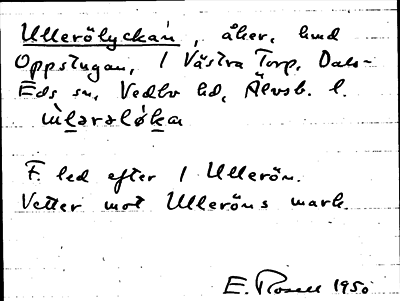 Ullerölyckan, åker, hmd
Oppstugan, 1 Västra Torp, Dals-
Eds sn, Vedbo hd, Älvsb. l.
ùlərəløka
F. led efter 1 Ullerön.
Vetter mot Ulleröns mark.
E. Rosell 1950